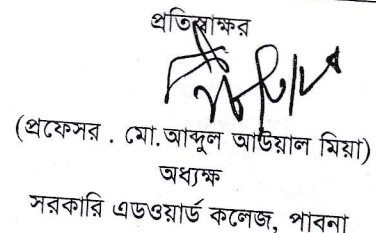 প্রতিস্বাক্ষর
(প্রফেসর . মো.আব্দুল আউয়াল মিয়া)
অধ্যক্ষ
সরকারি এডওয়ার্ড কলেজ, পাবনা